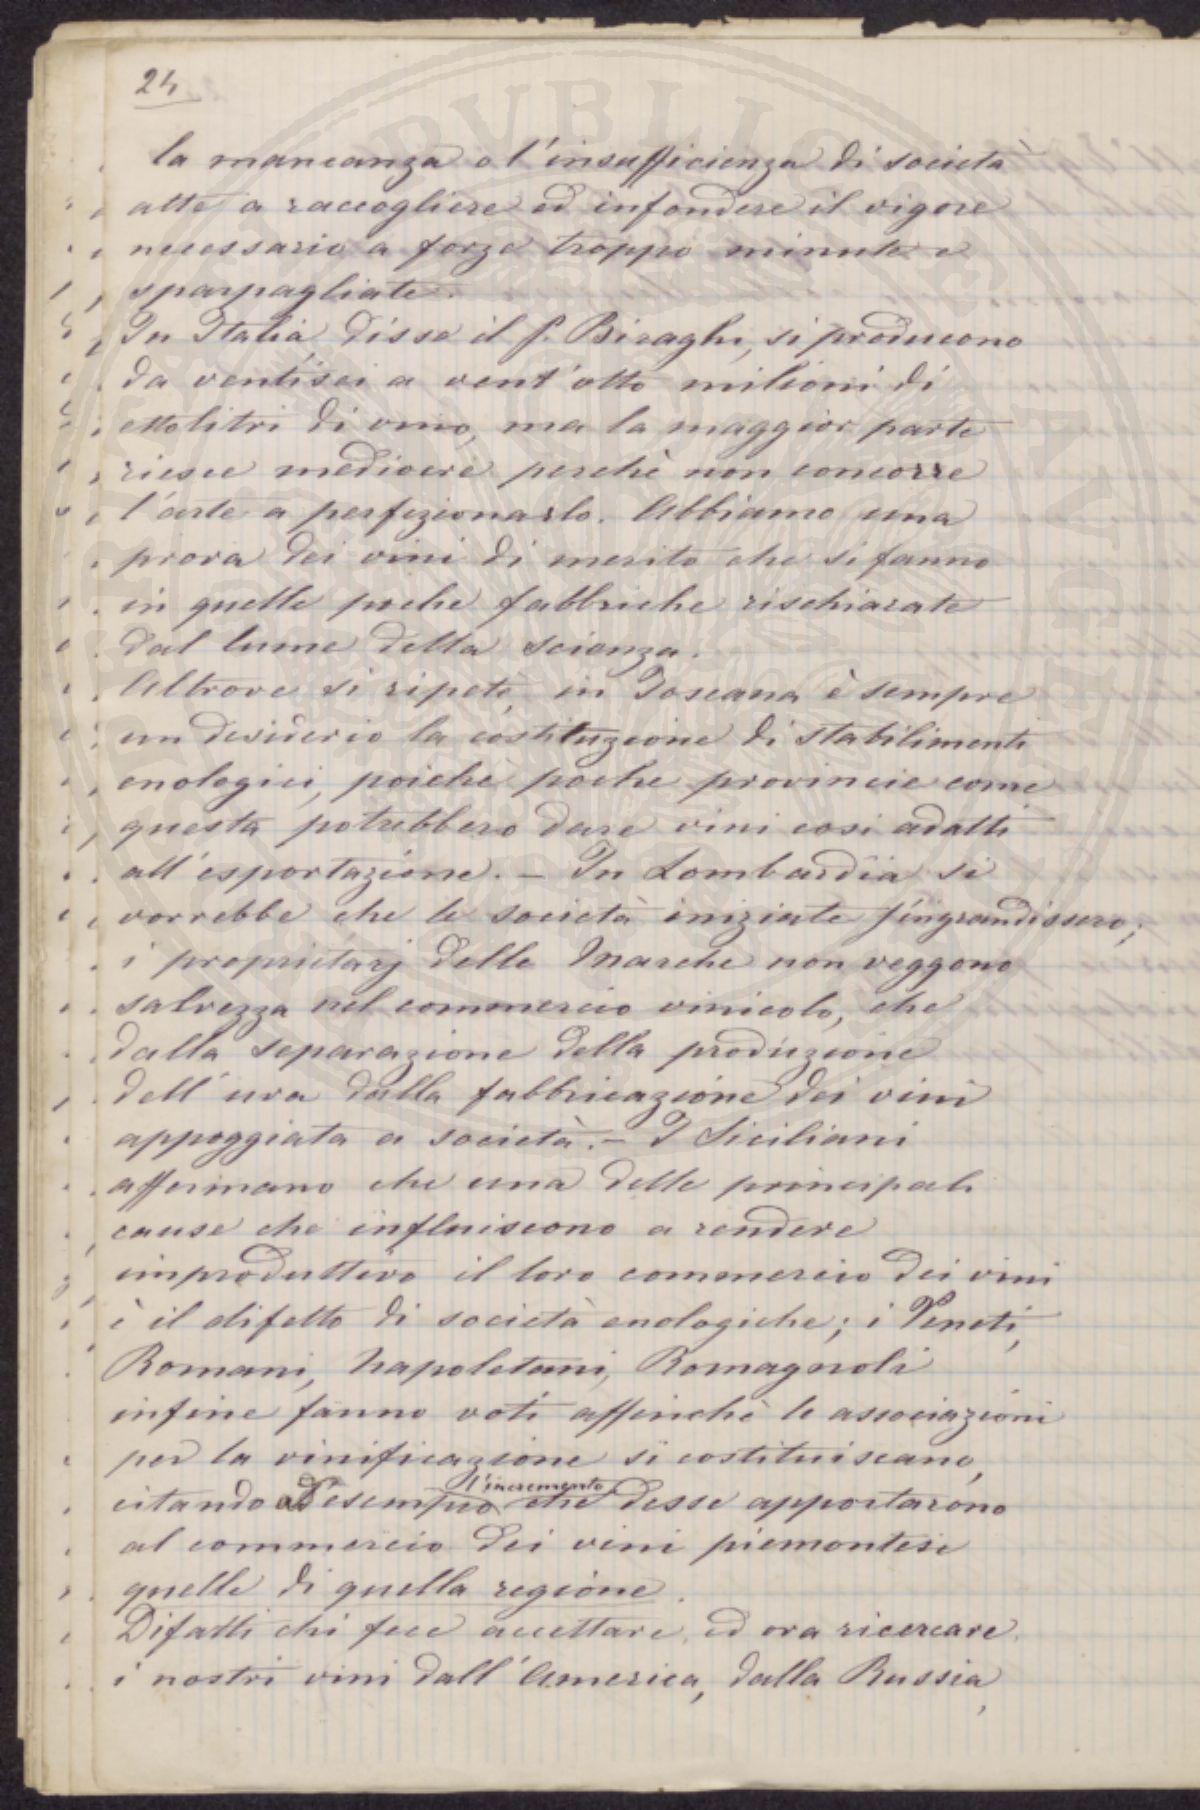 24
la mancanza o l'insufficienza di società
atte a raccogliere ed infondere il vigore
necessario a forze troppo minute e
sparpagliate.
In Italia disse il S. Biraghi, si producono
da ventisei a vent'otto milioni di
ettolitri di vino, ma la maggior parte
riesce mediocre perchè non concorre
l'arte a perfezionarlo. Abbiamo una
prova dei vini di merito che si fanno
in quelle poche fabbriche rischiarate
dal lume della scienza.
Altrove si ripetè, in Toscana è sempre
un desiderio la costituzione di stabilimenti
enologici, poichè poche provincie come
questa potrebbero dare vini così adatti
all'esportazione. – In Lombardia si
vorrebbe che le società iniziate s'ingrandissero;
i proprietarj delle Marche non veggono
salvezza nel commercio vinicolo, che
dalla separazione della produzione
dell'uva dalla fabbricazione dei vini
appoggiata a società. – I Siciliani
affermano che una delle principali
cause che influiscono a rendere
improduttivo il loro commercio dei vini
è il difetto di società enologiche; i Veneti,
Romani, Napoletani, Romagnoli
infine fanno voti affinchè le associazioni
per la vinificazione si costituiscano,
l'incremento
citando ad esempio che desse apportarono
al commercio dei vini piemontesi
quelle di quella regione.
Difatti chi fece accettare, ed ora ricercare
i nostri vini dall'America, dalla Russia,